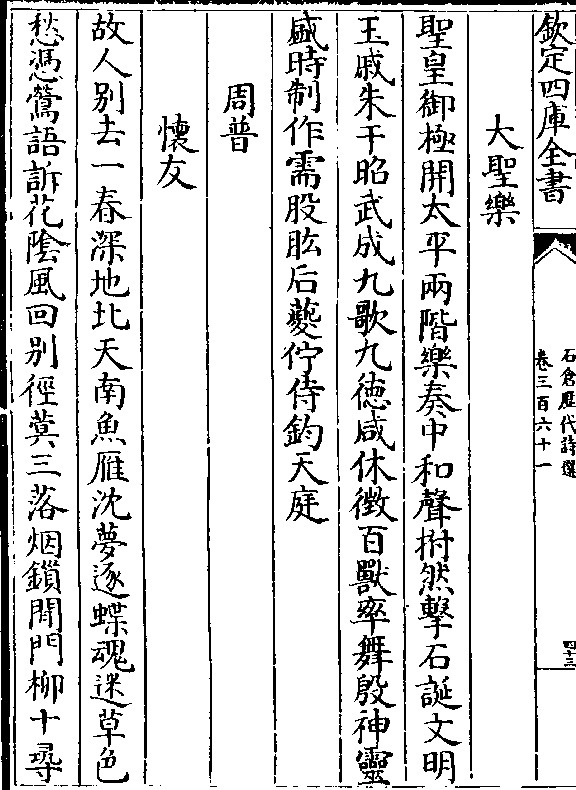 欽定四庫全書
石倉歷代詩選
卷三百六十一
四十三
大聖樂
聖皇御極開太平兩階樂奏中和聲拊然擊石誕文明
玉戚朱干昭武成九歌九徳咸休徴百獸率舞殷神靈
盛時制作需股肱后夔佇侍鈞天庭
周普
懷友
故人别去一春深地北天南魚雁沈夢逐蝶魂迷草色
愁憑鶯語訴花陰風回别徑蓂三落烟鎖閒門柳十尋